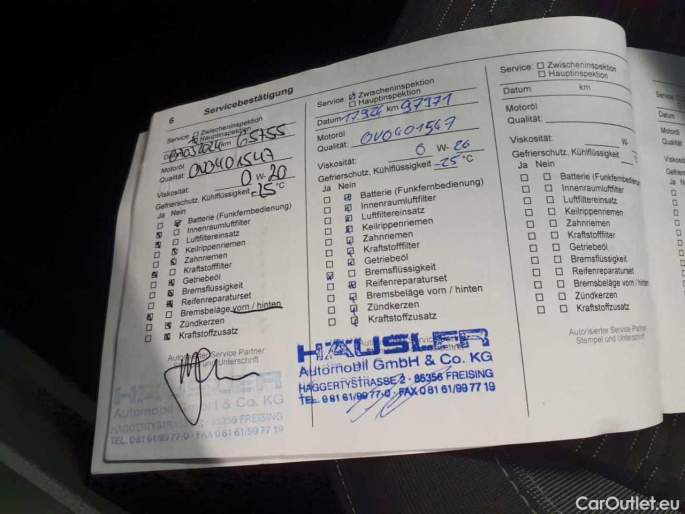 6 Servicebestätigung
Service: Zwischeninspektion
Hauptinspektion
km 65755
Motoröl
Qualität: OVO401547
Viskosität: 0 W-20
Gefrierschutz, Kühlflüssigkeit -25 °C
Ja Nein
Batterie (Funkfernbedienung)
Innenraumluftfilter
Luftfiltereinsatz
Keilrippenriemen
Zahnriemen
Kraftstofffilter
Getriebeöl
Bremsflüssigkeit
Reifenreparaturset
Bremsbeläge vorn / hinten
Zündkerzen
Kraftstoffzusatz
Autorisierter Service Partner
Stempel und Unterschrift
HÄUSLER
Automobil GmbH & Co. KG
HAGGERTYSTRASSE 2 · 85356 FREISING
TEL. 0 81 61/99 77-0 · FAX 0 81 61/99 77 19
Service: Zwischeninspektion
Hauptinspektion
Datum km 97371
Motoröl
Qualität: OVO401547
Viskosität: 0 W- 20
Gefrierschutz, Kühlflüssigkeit -25 °C
Ja Nein
Batterie (Funkfernbedienung)
Innenraumluftfilter
Luftfiltereinsatz
Keilrippenriemen
Zahnriemen
Kraftstofffilter
Getriebeöl
Bremsflüssigkeit
Reifenreparaturset
Bremsbeläge vorn / hinten
Zündkerzen
Kraftstoffzusatz
HÄUSLER
Automobil GmbH & Co. KG
HAGGERTYSTRASSE 2 · 85356 FREISING
TEL. 0 81 61/99 77-0 · FAX 0 81 61/99 77 19
Service: Zwischeninspektion
Hauptinspektion
Datum km
Motoröl
Qualität:
Viskosität: W-
Gefrierschutz, Kühlflüssigkeit °C
Ja Nein
Batterie (Funkfernbedienung)
Innenraumluftfilter
Luftfiltereinsatz
Keilrippenriemen
Zahnriemen
Kraftstofffilter
Getriebeöl
Bremsflüssigkeit
Reifenreparaturset
Bremsbeläge vorn / hinten
Zündkerzen
Kraftstoffzusatz
Autorisierter Service Partner
Stempel und Unterschrift
CarOutlet.eu